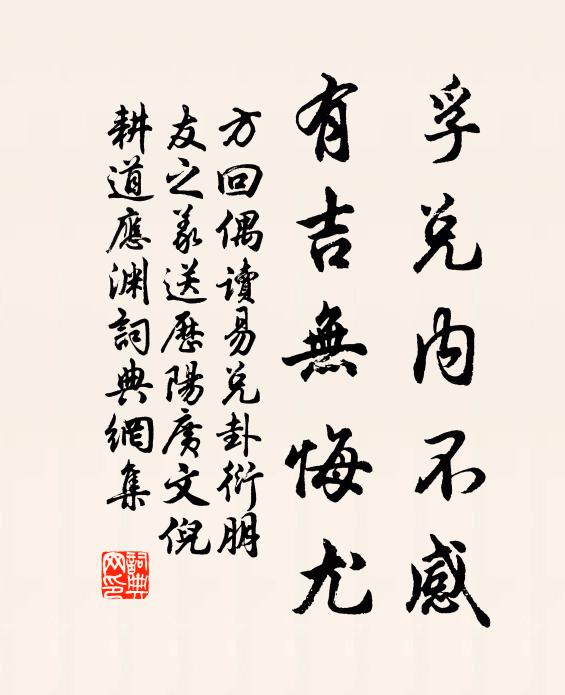 孚兑内不感
有吉無悔尤
方回偶讀易兑卦衍朋
友之義送歷陽廣文倪
耕道應渊詞典網集
詞典网印